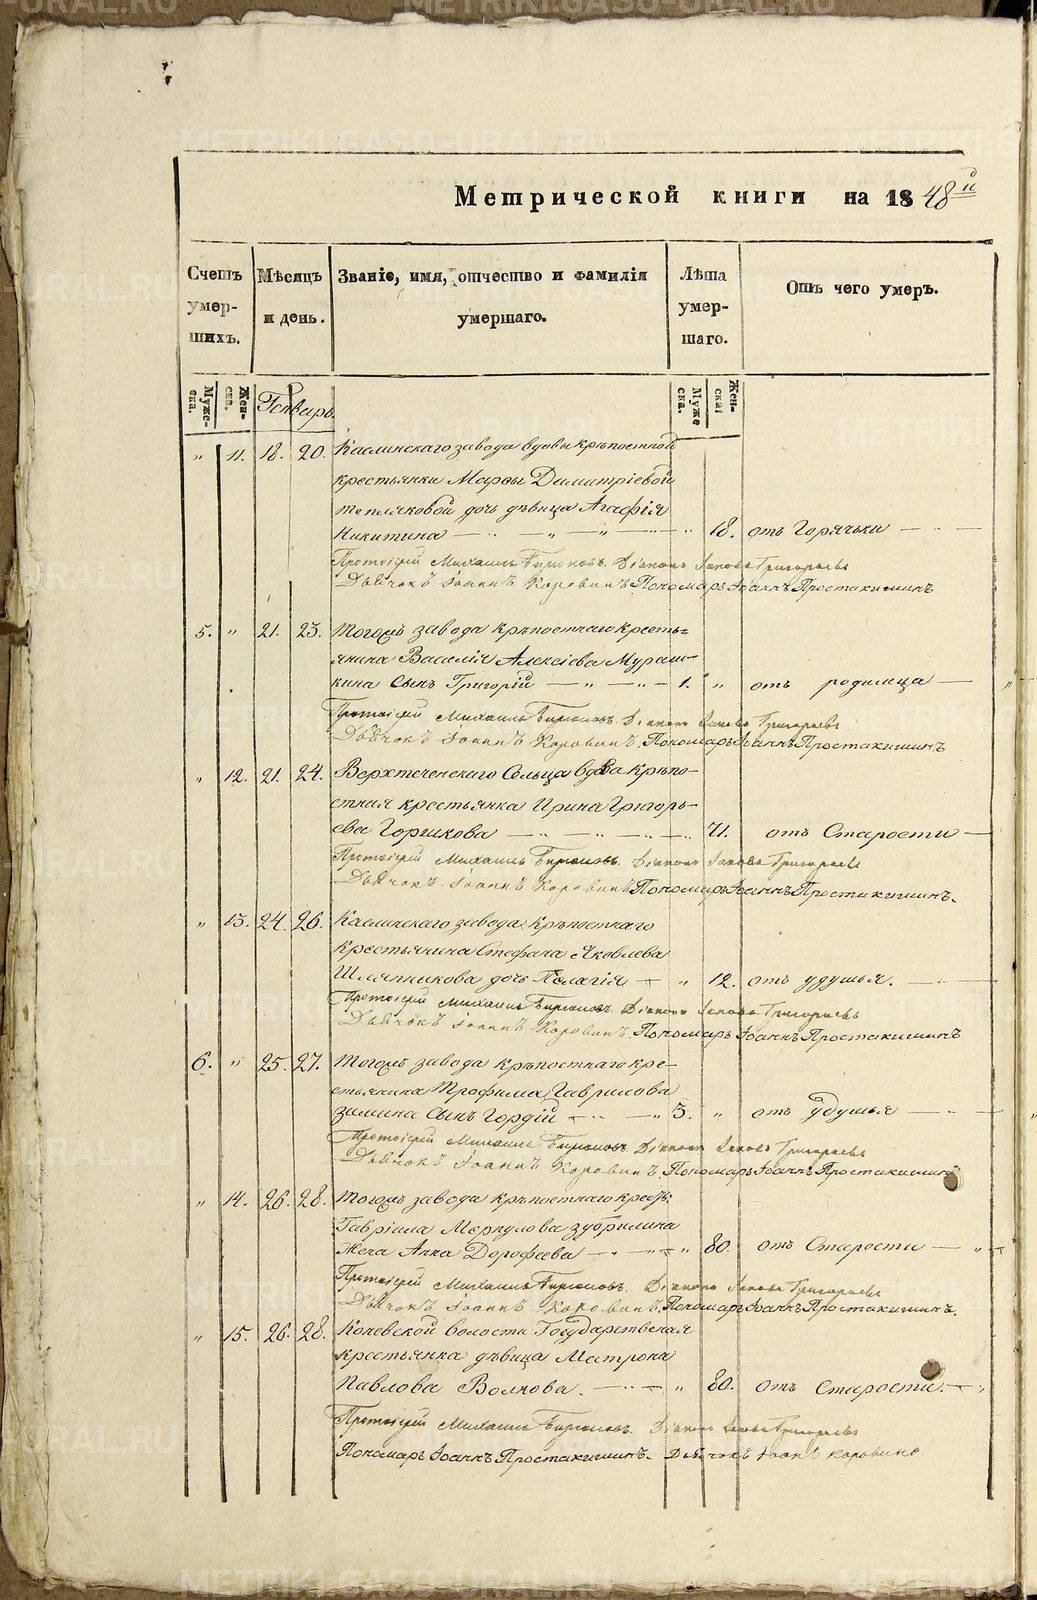 METRIKI.GASO-URAL.RU
Метрической книги на 1848 й
Счетъ умер-шихъ.
Мѣсяцъ и день.
Званіе, имя, отчество и фамилія умершаго.
Лѣта умер-шаго.
Отъ чего умеръ.
Муже-ска.
Жен-ска.
Генварь.
Муже ска.
Жен-ска.
" 11. 18. 20. Каслинскаго завода вдовы крѣпостной
крестьянки Марѳы Димитріевой
Тепляковой дочь дѣвица Агафія
Никитина — " — " — " 18. отъ Горячьки — " —
Протоіерей Михаилъ Бирюковъ. Діаконъ Іаковъ Григорьевъ
Дьячокъ Іоаннъ Коровинъ Пономарь Іоаннъ Простакишинъ
5. " 21. 23. Тогожъ завода крѣпостнаго кресть=
янина Василія Алексіева Мураш-
кина Сынъ Григорій — " — " — 1. " отъ родимца —
Протоіерей Михаилъ Бирюковъ. Діаконъ Іаковъ Григорьевъ
Дьячокъ Іоаннъ Коровинъ. Пономарь Іоаннъ Простакишинъ
" 12. 21. 24. Верхтеченскаго Сельца вдова крѣпо-
стная крестьянка Ирина Григорь-
ева Горшкова — " — " — " — " 71. отъ Старости —
Протоіерей Михаилъ Бирюковъ. Діаконъ Іаковъ Григорьевъ
Дьячокъ Іоаннъ Коровинъ Пономарь Іоаннъ Простакишинъ.
" 13. 24. 26. Каслинскаго завода крѣпостнаго
крестьянина Стефана Яковлева
Шляпникова дочь Пелагія — " 12. отъ удушья. — " —
Протоіерей Михаилъ Бирюковъ. Діаконъ Іаковъ Григорьевъ
Дьячокъ Іоаннъ Коровинъ. Пономарь Іоаннъ Простакишинъ
6. " 25. 27. Тогожъ завода крѣпостнаго кре-
стьянина Трофима Гаврилова
Зимина Сынъ Гордій — " — " 3. " отъ удушья — " —
Протоіерей Михаилъ Бирюковъ. Діаконъ Іаковъ Григорьевъ
Дьячокъ Іоаннъ Коровинъ. Пономарь Іоаннъ Простакишинъ
" 14. 26. 28. Тогожъ завода крѣпостнаго крест:
Гавріила Меркулова Зубрилина
Жена Анна Дорофеева — " — " — " 80. отъ Старости — " —
Протоіерей Михаилъ Бирюковъ. Діаконъ Іаковъ Григорьевъ
Дьячокъ Іоаннъ Коровинъ. Пономарь Іоаннъ Простакишинъ.
" 15. 26. 28. Коневской волости Государственная
крестьянка дѣвица Матрона
Павлова Волкова. — " — " 80. отъ Старости. — "
Протоіерей Михаилъ Бирюковъ. Діаконъ Іаковъ Григорьевъ
Пономарь Іоаннъ Простакишинъ. Дьячокъ Іоаннъ Коровинъ
METRIKI.GASO-URAL.RU